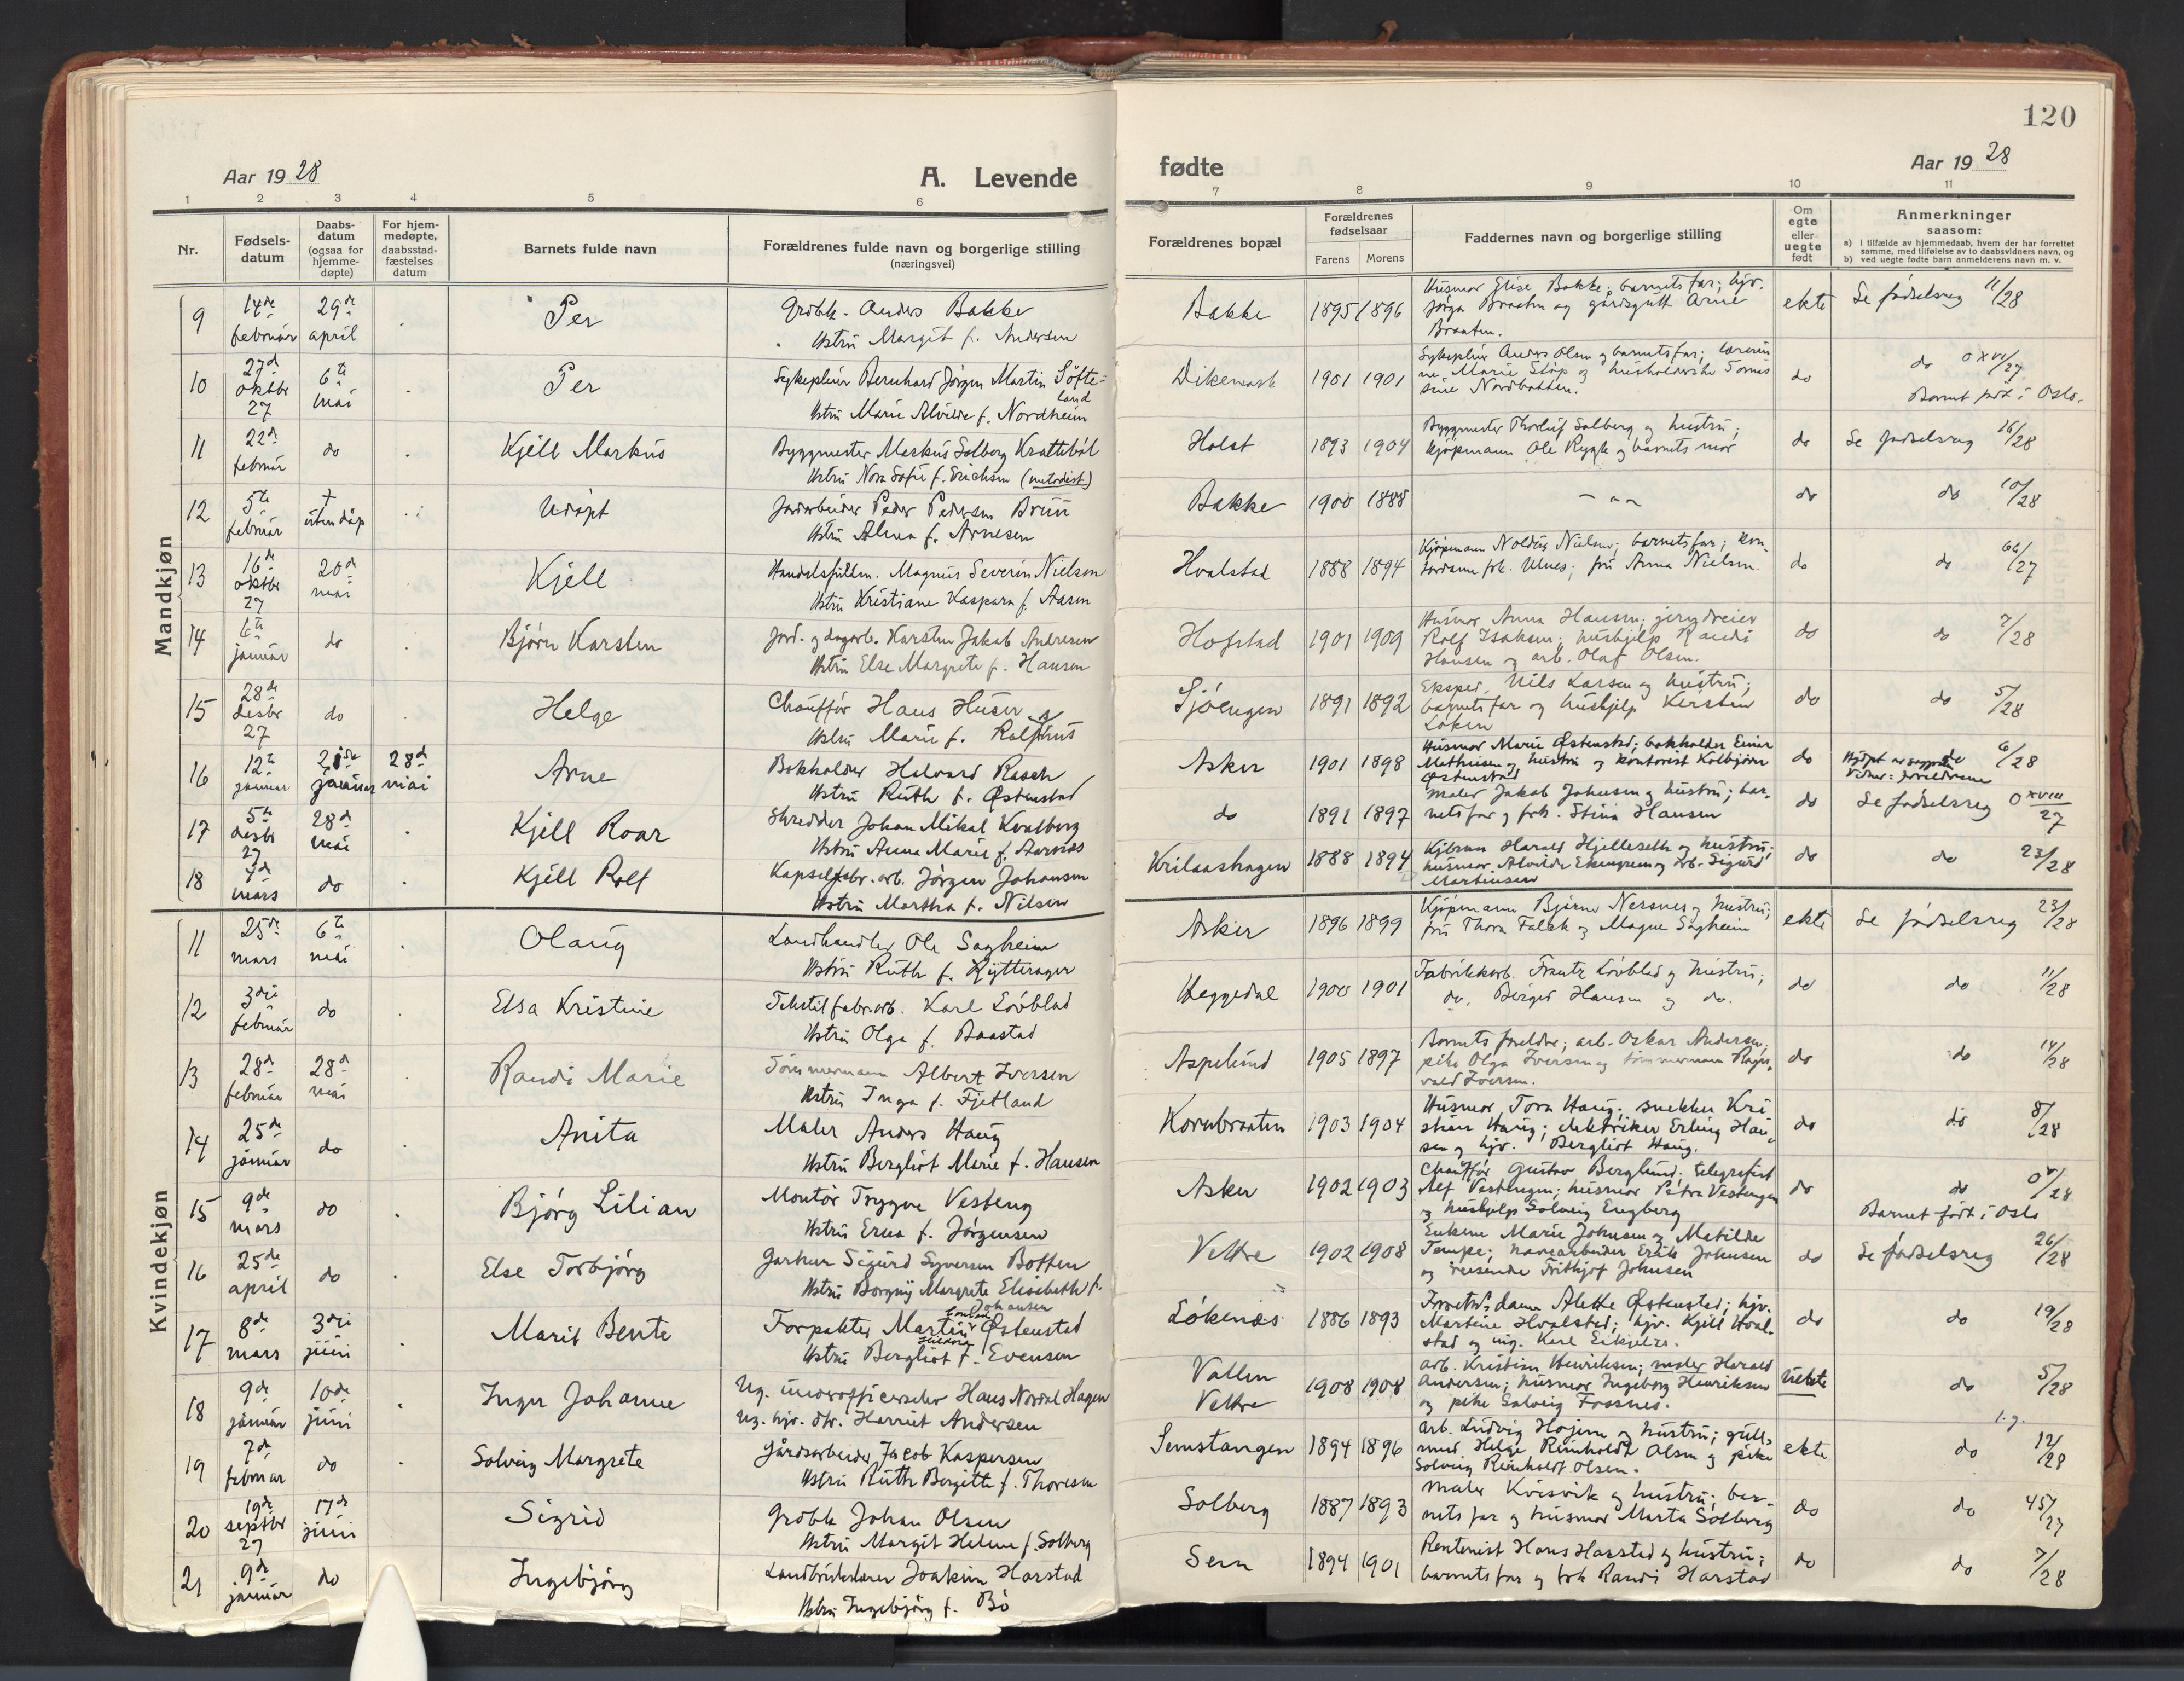 120
Aar 1928
A. Levende
fødte
Aar 1928
1 2 3 4 5 6 7 8 9 10 11
Nr.
Fødsels-
datum
Daabs-
datum
(ogsaa for
hjemme-
døpte)
For hjem-
medøpte,
daabsstad-
fæstelses
datum
Barnets fulde navn
Forældrenes fulde navn og borgerlige stilling
(næringsvei)
Forældrenes bopæl
Forældrenes
fødselsaar
Farens Morens
Faddernes navn og borgerlige stilling
Om
egte
eller
uegte
født
Anmerkninger
saasom:
a) i tilfælde av hjemmedaab, hvem der har forrettet
samme, med tilføielse av to daabsvidners navn, og
b) ved uegte fødte barn anmelderens navn m. v.
Mandkjøn
9 14de februar 29de april Per
Anders Bakke
Hstru Margit f. Andersen
Bakke 1895 1896
Husmor Elise Bakke; barnets far; hjv.
Braaten og gårdsgutt Arne
Braaten.
ekte Se fødselsreg 11/28
10 27de oktbr 27 6te mai Per
Sykepleier Bernhard Jörgen Martin Söfte-
land
Hstru Marie Alvilde f. Nordheim
Dikemark 1901 1901
Sykepleier Anders Olsen og barnets far; lærerin-
ne Marie Sløp og
Nordbotten.
do do 0 XVI/27
Barnet født i Oslo.
11 22de februar do Kjell Markus
Byggmester Markus Solberg Krattebøl
Hstru Nora Sofie f. Erichsen (metodist)
Holst 1893 1904
Byggmester Thorleif Solberg og hustru;
kjøpmann Ole Rygh og barnets mor
do Se fødselsreg 16/28
12 5te februar † uten dåp Udøpt
Jordarbeider Peder Pedersen Bruu
Hstru Alma f. Arnesen
Bakke 1900 1888
do do 10/28
13 16de oktbr 27 20de mai Kjell
Handelsfullm. Magnus Severin Nielsen
Hstru Kristiane Kaspara f. Aasen
Hvalstad 1888 1894
Kjøpmann Nielsen; barnets far; kon-
tordame frk. Ulnes; fru Anna Nielsen.
do do 66/27
14 6te januar do Bjørn Karsten
Jord. og dagarb. Karsten Jakob Andresen
Hstru Else Margrete f. Hansen
Hofstad 1901 1909
Husmor Anna Hansen; jerndreier
Rolf Isaksen; hushjelp Randi
Hansen og arb. Olaf Olsen.
do do 7/28
15 28de desbr 27 do Helge
Chauffør Hans Huser
Hstru Marie f.
Sjöengen 1891 1892
Eksped. Nils Larsen og hustru;
barnets far og hushjelp Kersten
Løken
do do 5/28
16 12te januar januar 28de mai Arne
Bokholder Halvard Rasch
Hstru Ruth f. Østenstad
Asker 1901 1898
Husmor Marie Østenstad; bokholder Einar
Mathisen og hustru og kontorist Kolbjørn
Østenstad
do do 6/28
17 5te desbr 27 28de mai Kjell Roar
Skredder Johan Mikal Kvalberg
Hstru Anna Marie f. Aarnes
do 1891 1897
Maler Jakob Johnsen og hustru; bar-
nets far og frk. Stina Hansen
do Se fødselsreg 0 XVIII/27
18 mars do Kjell Rolf
Kapselfabr.arb. Jörgen Johansen
Hstru Martha f. Nilsen
1888 1894
Harald Hjelleseth og hustru;
husmor Alvilde og arb. Sigurd
Martinsen
do do 23/28
Kvindekjøn
11 25de mars 6te mai Olaug
Landhandler Ole Sagheim
Hstru Ruth f. Rytterager
Asker 1896 1899
Kjøpmann Bjarne Nersnes og hustru;
fru Thora Falck og Magne Sagheim
ekte Se fødselsreg 23/28
12 3die februar do Elsa Kristine
Tekstilfabr.arb. Karl Lövblad
Hstru Olga f. Baastad
Heggedal 1900 1901
Fabrikkarb. Frantz Lövblad og hustru;
do. Birger Hansen og do.
do do 11/28
13 28de februar 28de mai Randi Marie
Tömmermann Albert Iversen
Hstru Inga f. Fjetland
Aspelund 1905 1897
Barnets foreldre; arb. Oskar Andersen;
pike Olga Iversen og tömmermann Ragn-
vald Iversen.
do do 14/28
14 25de januar do Anita
Maler Anders Haug
Hstru Bergliot Marie f. Hansen
Kornbraaten 1903 1904
Husmor Tora Haug; snekker Kri-
stian Haug; elektriker Erling Han-
sen og hjv. Bergliot Haug.
do do 8/28
15 9de mars do Bjørg Lilian
Montør Trygve Vesteng
Hstru Erna f. Jørgensen
Asker 1902 1903
Chauffør Gustav Berglund; telegrafist
Alf Vestengen; husmor Petra Vestengen
og hushjelp Solveig Engberg
do do 0 V/28
Barnet født i Oslo
16 25de april do Else Torbjørg
Gartner Sigurd Syversen Botten
Hstru Borgny Margrete Elisabeth f.
Johansen
Vettre 1902 1908
Enkene Marie Johnsen og Matilde
Tempe; Erik Johnsen
og reisende Frithjof Johnsen
do Se fødselsreg 26/28
17 8de mars 3die juni Marit Bente
Forpakter Martin Østenstad
Hstru Bergliot f. Evensen
Løkenæs 1886 1893
Alette Østenstad; hjv.
Martine Hvalstad; hjv. Kjell Hval-
stad og ing. Karl
do do 19/28
18 9de januar 10de juni Inger Johanne
Ug. underofficerselev Hans Nordal Hagen
Ug. hjv. dtr. Harriet Andersen
Vollen
Vettre 1908 1908
Arb. Kristian Henriksen; maler Harald
Andersen; husmor Ingeborg Henriksen
og pike Solveig Fossnes.
uekte do 5/28
19 7de februar do Solveig Margrete
Gårdsarbeider Jacob Kaspersen
Hstru Ruth Bergitte f. Thoresen
Semstangen 1894 1896
Arb. Ludvig Højem og hustru; gull-
smed Helge Reinholdt Olsen og pike
Solveig Reinholdt Olsen.
ekte do 12/28
20 19de septbr 27 17de juni Sigrid
Johan Olsen
Hstru Margit Helene f. Solberg
Solberg 1887 1893
Maler Kvisvik og hustru; bar-
nets far og husmor Marta Solberg
do do 45/27
21 9de januar do Ingebjørg
Landbrukslærer Joakim Harstad
Hstru Ingebjørg f. Bö
Sem 1894 1901
Rentenist Hans Harstad og hustru;
barnets far og frk Randi Harstad
do do 7/28